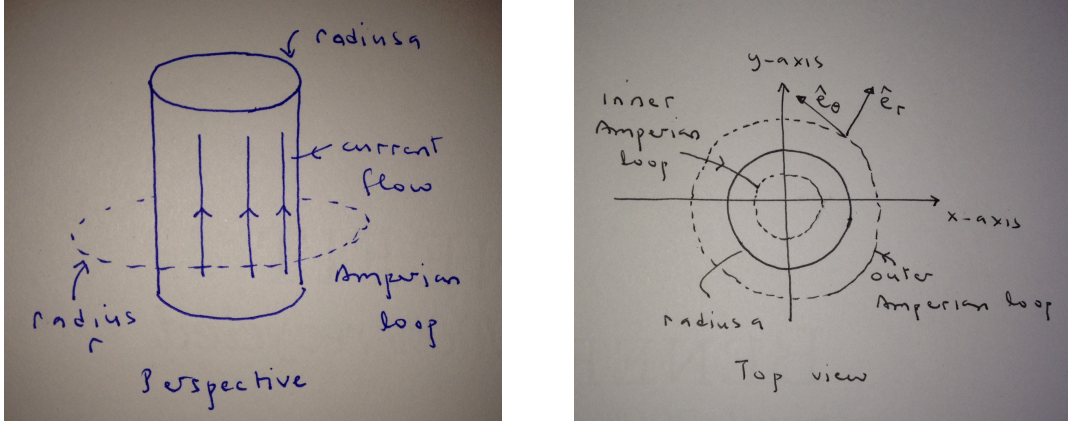 radius a
current
flow
Amperian
loop
radius
r
Perspective
y-axis
inner
Amperian
loop
ê_θ
ê_r
x-axis
outer
Amperian loop
radius a
Top view